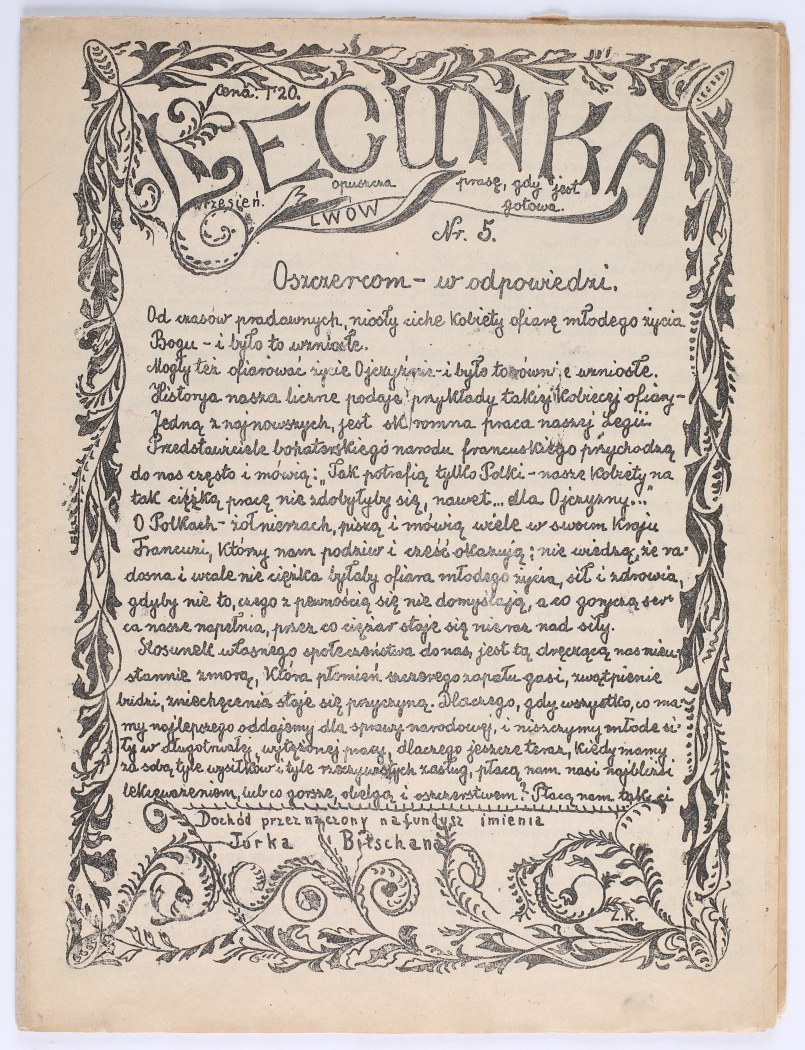 Cena: 1·20.
LEGUNKA
wrzesień.
opuszcza prasę, gdy jest
LWÓW
gotowa.
Nr. 5.
Oszczercom – w odpowiedzi.
Od czasów pradawnych, niosły ciche kobiety ofiarę młodego życia
Bogu – i było to wzniosłe.
Mogły też ofiarować życie Ojczyźnie – i było to równie wzniosłe.
Historja nasza liczne podaje przykłady takiej kobiecej ofiary –
Jedną z najnowszych, jest skromna praca naszej Legji.
Przedstawiciele bohaterskiego narodu francuskiego przychodzą
do nas często i mówią: „Tak potrafią tylko Polki – nasze kobiety na
tak ciężką pracę nie zdobyłyby się, nawet... dla Ojczyzny..."
O Polkach – żołnierzach, piszą i mówią wiele w swoim kraju
Francuzi, którzy nam podziw i cześć okazują; nie wiedzą, że ra-
dosna i wcale nie ciężka byłaby ofiara młodego życia, sił i zdrowia,
gdyby nie to, czego z pewnością się nie domyślają, a co goryczą ser-
ca nasze napełnia, przez co ciężar staje się nieraz nad siły.
Stosunek własnego społeczeństwa do nas, jest tą dręczącą nas nieu-
stannie zmorą, która płomień szczerego zapału gasi, zwątpienie
budzi, zniechęcenia staje się przyczyną. Dlaczego, gdy wszystko, co ma-
my najlepszego oddajemy dla sprawy narodowej, i niszczymy młode si-
ły w długotrwałej, wytężonej pracy, dlaczego jeszcze teraz, kiedy mamy
za sobą tyle wysiłków i tyle rzeczywistych zasług, płacą nam nasi najbliżsi
lekceważeniem, lub co gorsze, obelgą i oszczerstwem? Płacą nam tak ci
Dochód przeznaczony na fundusz imienia
Jurka Bitschana
Z.R.